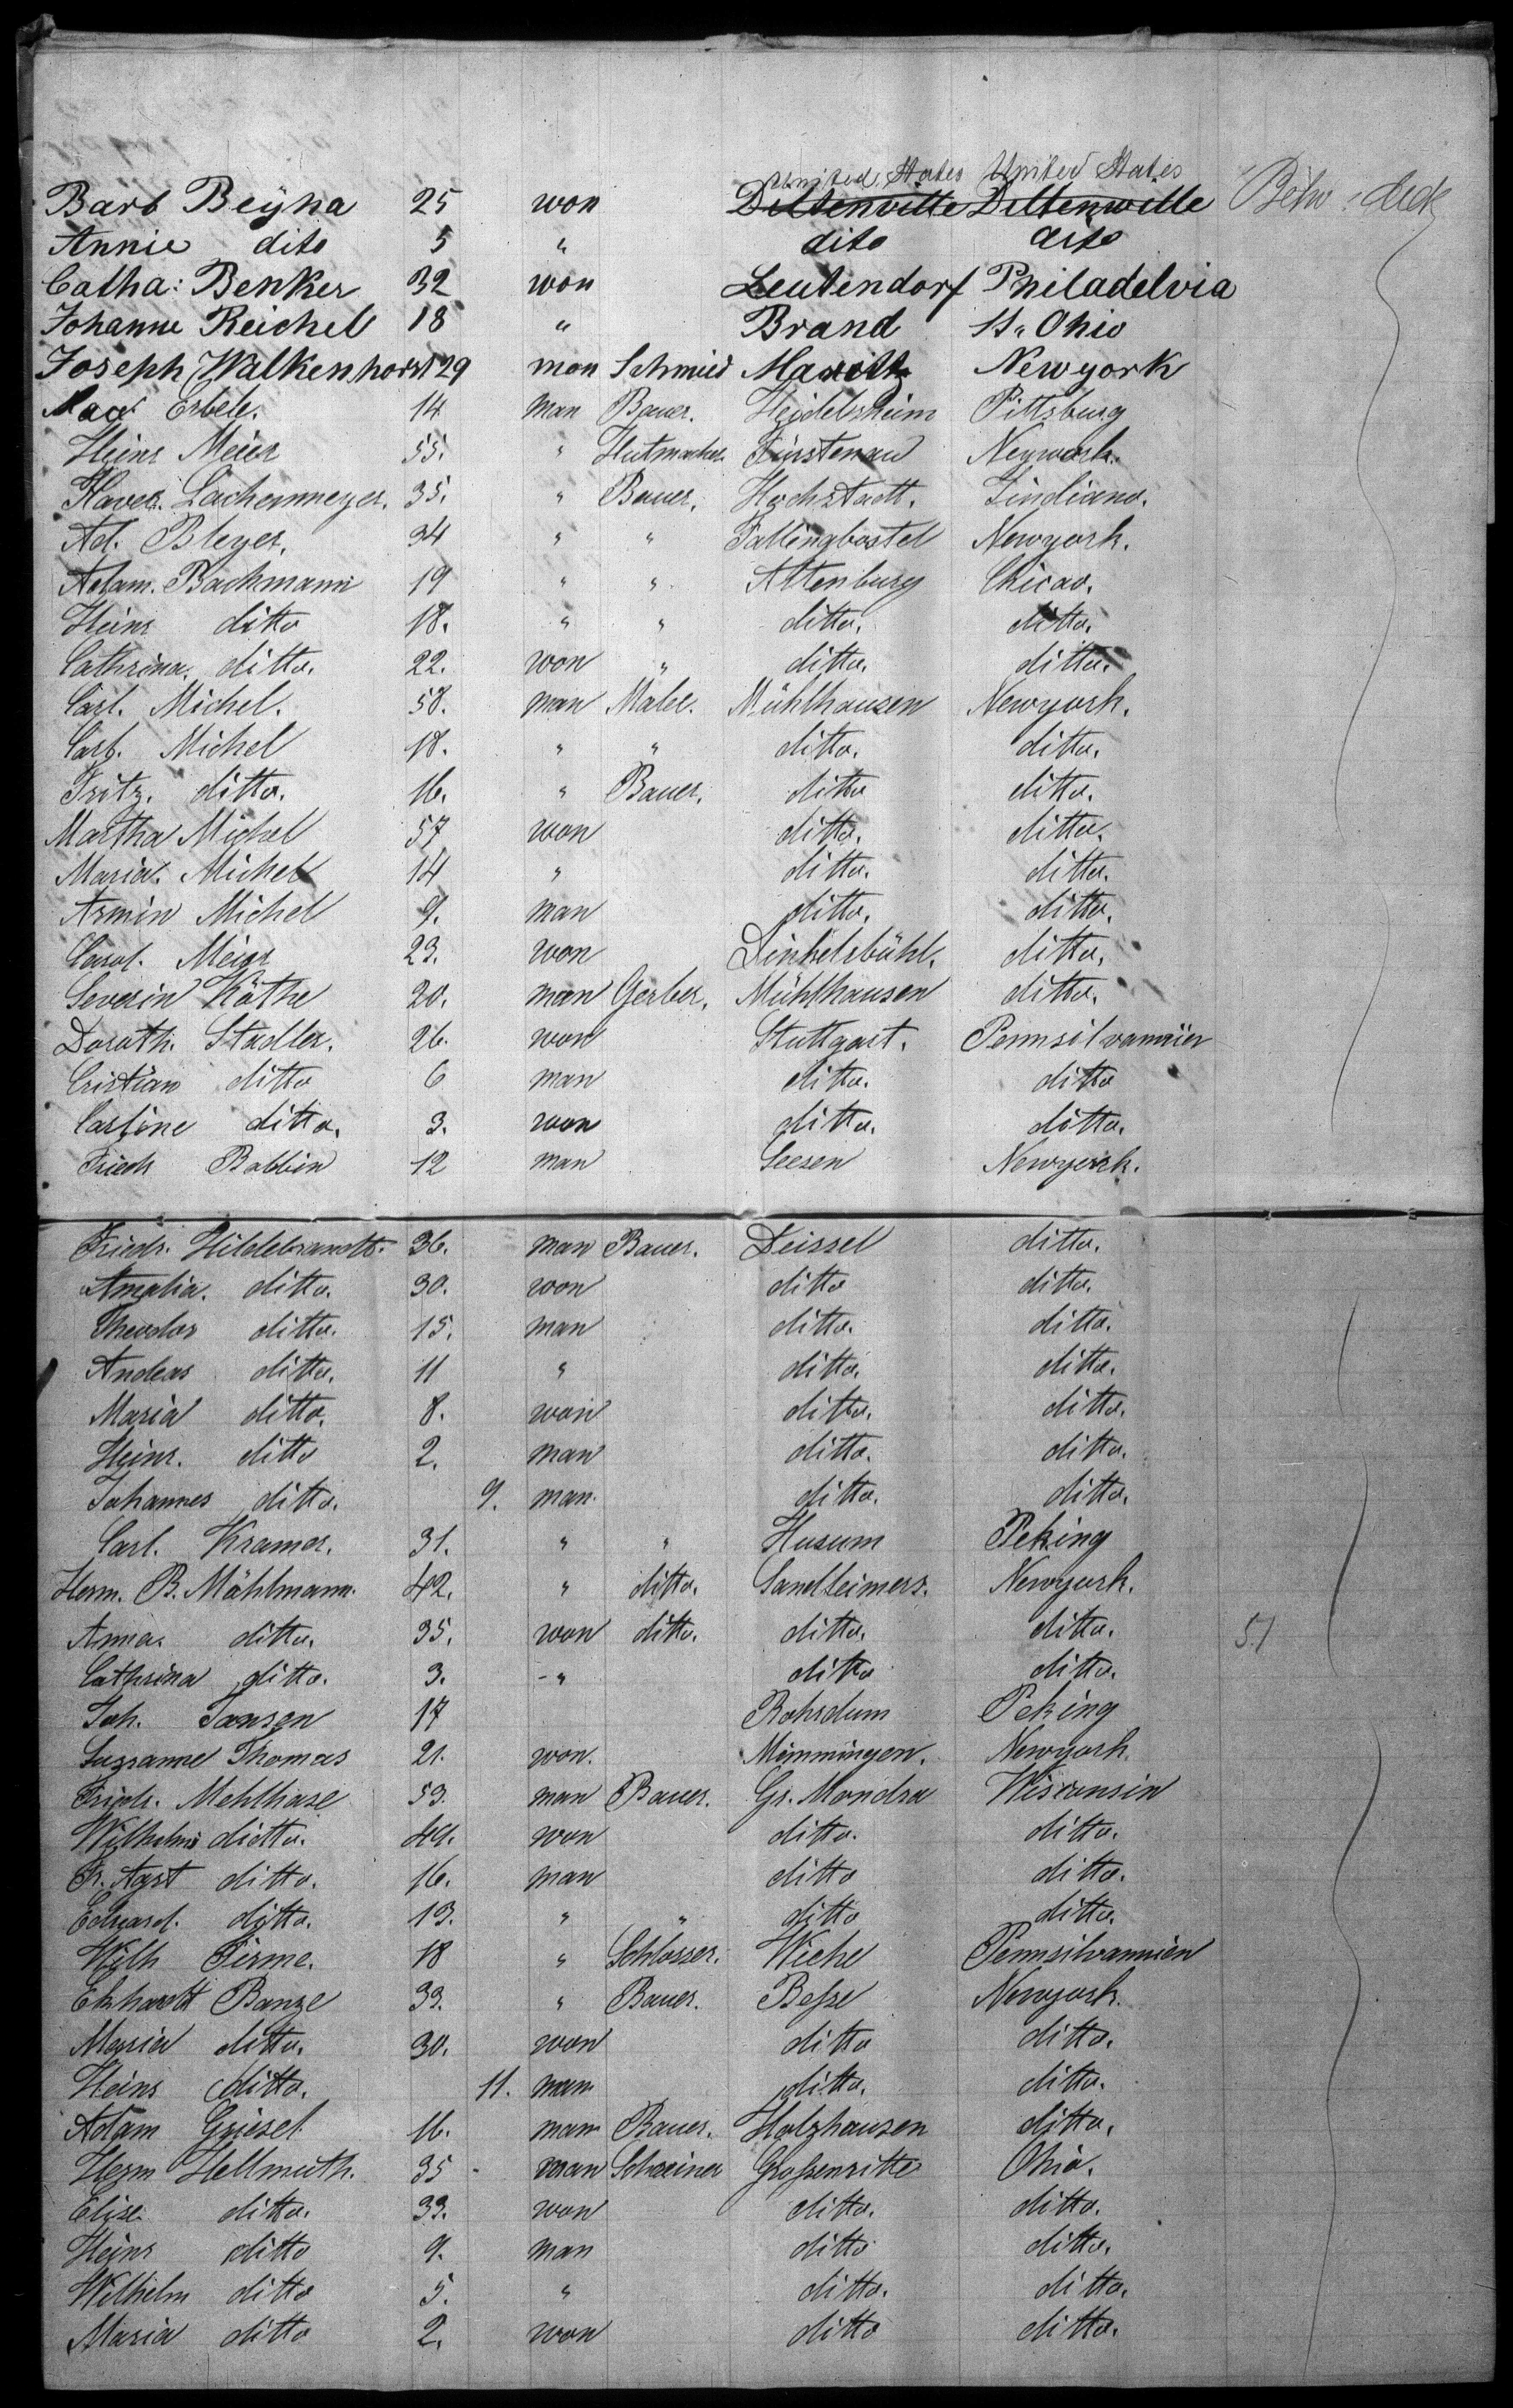 United States United States
Barb Beÿka 25 won Deltenville Deltenwille Betw: deck
Annie dito 5 " dito dito
Catha: Benker 32 won Leutendorf Philadelvia
Johanne Reichel 18 " Brand St. Ohio
Joseph Walkenhorst 29 man Schmied Newyork
Erbele. 14 man Bauer. Heidelsheim Pittsburg
Heinr Meier 55. " Hutmacher Fürstenau Neywork.
Xaver. Lachenmeyer. 35. " Bauer. Hochstadt. Indiana.
Ad. Bleyer. 34 " " Fallingbostel Newyork.
Adam. Bachmann 19 " " Altenburg Chicao.
Heinr ditto 18. " " ditto. ditto.
Cathrina. ditto. 22. won " ditto. ditto.
Carl. Michel. 58. man Maler. Mühlhausen Newyork.
Carl. Michel 18. " " ditto. ditto.
Fritz. ditto. 16. " Bauer. ditto ditto.
Martha Michel 57 won ditto. ditto.
Maria. Michel 14 " ditto. ditto.
Armin Michel 9. man ditto. ditto.
Carol. Meier 23. won Dinkelsbühl. ditto.
Severin Köthe 20. man Gerber. Mühlhausen ditto.
Doroth. Stadler. 26. won Stuttgart. Pennsilvannien
Cristian ditto 6 man ditto. ditto
Carline ditto. 3. won ditto. ditto.
Friedr Babbin 12 man Seesen Newyork.
Friedr. Hildebrandt. 36. man Bauer. Deissel ditto.
Amalia. ditto. 30. won ditto ditto.
Theodor ditto. 15. man ditto. ditto.
Andeas ditto. 11 " ditto. ditto.
Maria ditto. 8. won ditto. ditto.
Heinr. ditto 2. man ditto. ditto.
Johannes ditto. 9. man. ditto. ditto.
Carl. Kramer. 31. " " Husum Peking
Herm. B. Mählmann. 42. " ditto. Newyork.
Anna. ditto. 35. won ditto. ditto. ditto. 51
Cathrina ditto. 3. -" ditto ditto.
Joh. Jansen 17 Rohrdum Peking
Suzanne Thomas 21. won. Mimmingen. Newyork.
Friedr. Mehlhase 53. man Bauer. Gr. Mondra Wisconsin
Wilhelm dictto. 49. won ditto. ditto.
Fr. Agst ditto. 16. man ditto ditto.
Eduard. ditto. 13. " " ditto ditto.
Wilh Firme. 18 " Schlosser. Wiehe Pennsilvannien
Ekhardt Banze 33. " Bauer. Beſse Newyork.
Maria ditto. 30. won ditto ditto.
Heinr ditto. 11. man ditto. ditto.
Adam Griesel 16. man Bauer. Holzhausen ditto.
Herm Hellmuth. 35 - man Schreiner Groſsenritte Ohio.
Elise. ditto. 33. won ditto. ditto.
Heinr ditto 9. man ditto ditto.
Wilhelm ditto 5. " ditto. ditto.
Maria ditto 2. won ditto ditto.